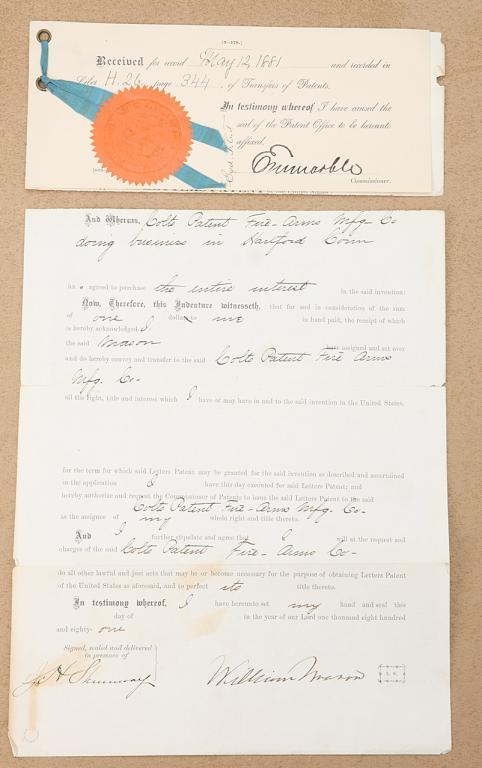 [3-278.]
Received for record May 12, 1881 and recorded in
Liber H. 26, page 344, of Transfers of Patents.
In testimony whereof I have caused the
seal of the Patent Office to be hereunto
affixed.
Commissioner.
And Whereas, Colts Patent Fire-Arms Mfg- Co
doing business in Hartford Conn
agreed to purchase the entire interest in the said invention:
Now, Therefore, this Indenture witnesseth, that for and in consideration of the sum
of one dollar to me in hand paid, the receipt of which
is hereby acknowledged I
the said Mason have assigned and set over
and do hereby convey and transfer to the said Colts Patent Fire Arms
Mfg. Co-
all the right, title and interest which I have or may have in and to the said invention in the United States.
for the term for which said Letters Patent may be granted for the said invention as described and ascertained
in the application I have this day executed for said Letters Patent; and
hereby authorize and request the Commissioner of Patents to issue the said Letters Patent to the said
Colts Patent Fire-Arms Mfg. Co-
as the assignee of my whole right and title thereto.
And I further stipulate and agree that I will at the request and
charges of the said Colts Patent Fire-Arms Co-
do all other lawful and just acts that may be or become necessary for the purpose of obtaining Letters Patent
of the United States as aforesaid, and to perfect its title thereto.
In testimony whereof, I have hereunto set my hand and seal this
day of in the year of our Lord one thousand eight hundred
and eighty-one
Signed, sealed and delivered
in presence of
William Mason
L. S.